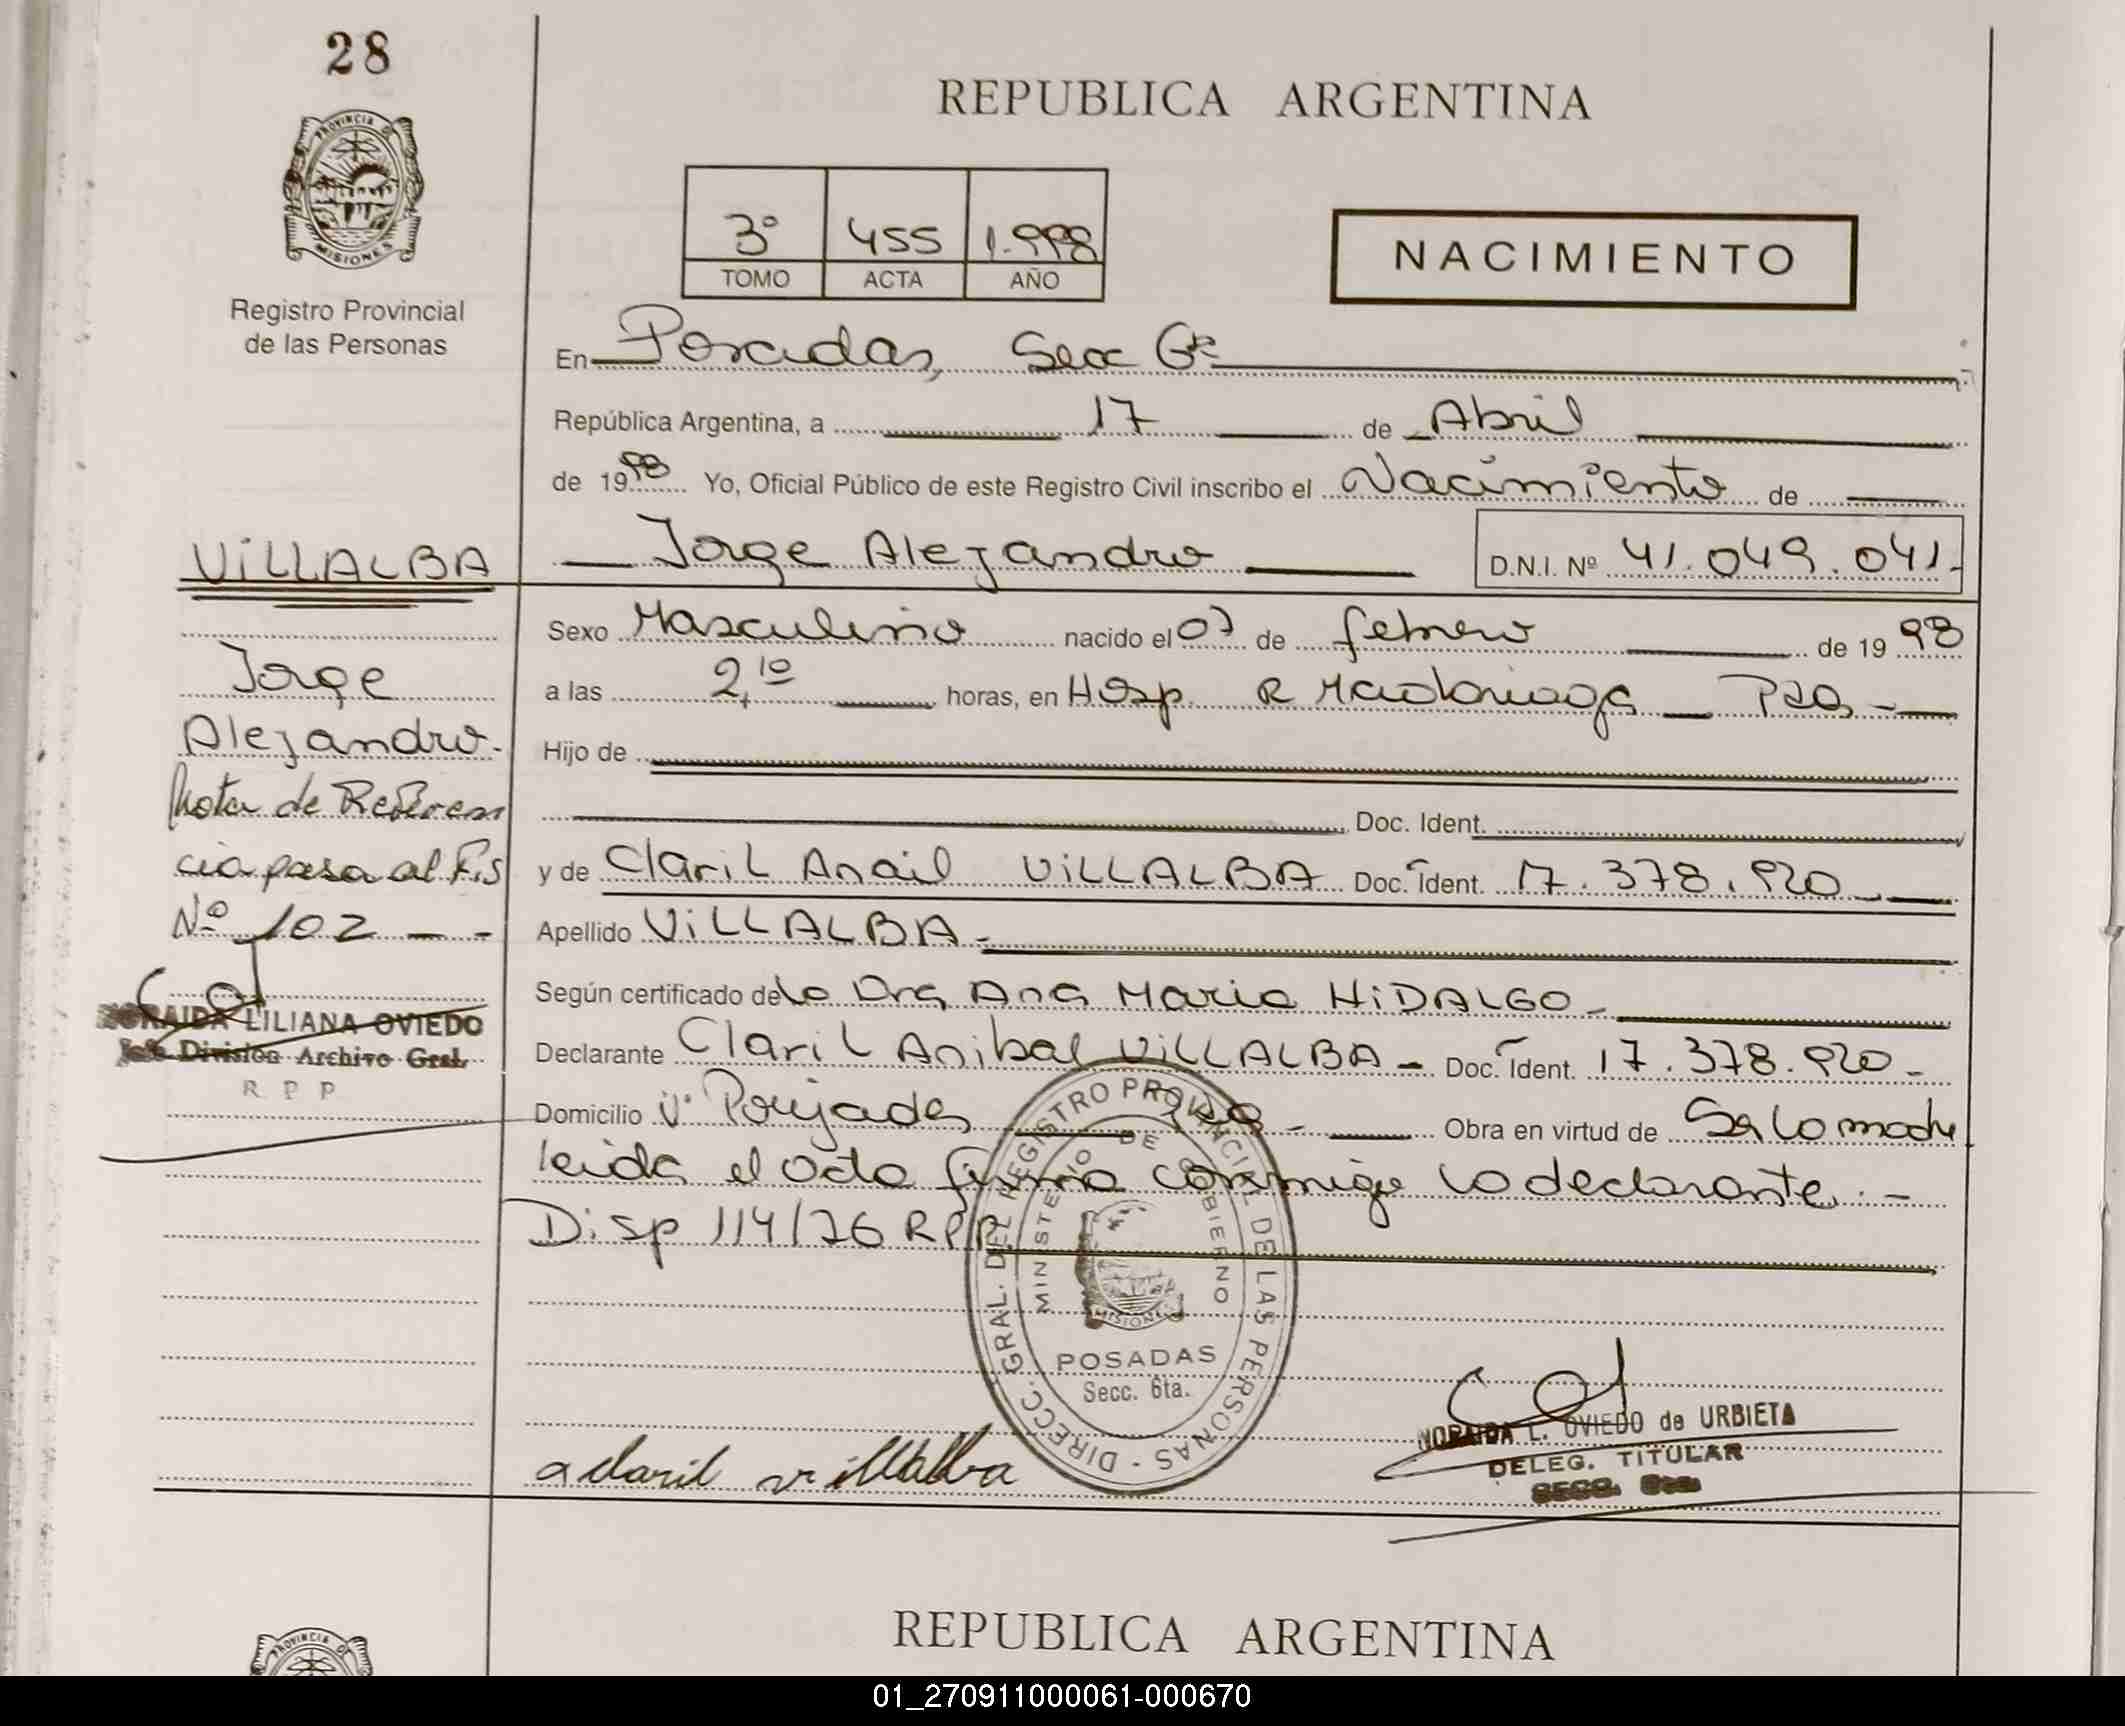 28
PROVINCIA DE
MISIONES
Registro Provincial
de las Personas
REPUBLICA ARGENTINA
3° 455 1.998
TOMO ACTA AÑO
NACIMIENTO
En Posadas, Secc 6ª
República Argentina, a 17 de Abril
de 1998 Yo, Oficial Público de este Registro Civil inscribo el Nacimiento de
VILLALBA
Jorge Alejandro D.N.I. Nº 41.049.041.-
Sexo Masculino nacido el 07 de febrero de 1998
Jorge
a las 2,10 horas, en Hosp. R Madariaga Pdas -
Alejandro.-
Hijo de
Nota de Referen
Doc. Ident.
cia pasa al Fis
y de Claril Anail VILLALBA Doc. Ident. 17.378.920
Nº 102 - -
Apellido VILLALBA.-
Según certificado de la Dra Ana Maria HIDALGO -
NORAIDA LILIANA OVIEDO
Jefe División Archivo Gral.
R P P
Declarante Claril Anibal VILLALBA - Doc. Ident. 17.378.920 -
Domicilio Vº Poujades Pdas - Obra en virtud de Ser la madre
leida el acta firma conmigo la declarante. -
Disp 114/76 RPP
DIRECC. GRAL. DEL REGISTRO PROVINCIAL DE LAS PERSONAS -
MINISTERIO DE GOBIERNO
MISIONES
POSADAS
Secc. 6ta.
claril villalba
NORAIDA L. OVIEDO de URBIETA
DELEG. TITULAR
SECC. 6ta
REPUBLICA ARGENTINA
PROVINCIA DE
01_270911000061-000670